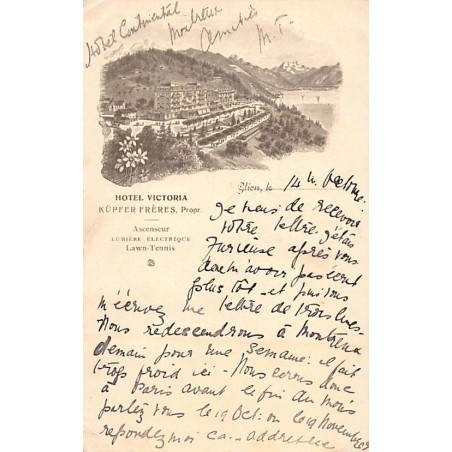 Hotel Continental
Montreux
Amitiés
M. T.
HOTEL VICTORIA
KÜPFER FRÈRES, Propr.
Ascenseur
LUMIÈRE ÉLECTRIQUE
Lawn-Tennis
Glion, le 14 Octobre.
Je viens de recevoir
votre lettre. j'étais
furieuse après vous
de n'avoir pas écrit
plus tôt - et puis vous
m'écrivez une lettre de trois lignes-
Nous redescendrons à Montreux
demain pour une semaine: il fait
trop froid ici - Nous serons donc
à Paris avant la fin du mois
parlez vous le 19 Oct. ou le 19 Novembre
répondez moi ça -